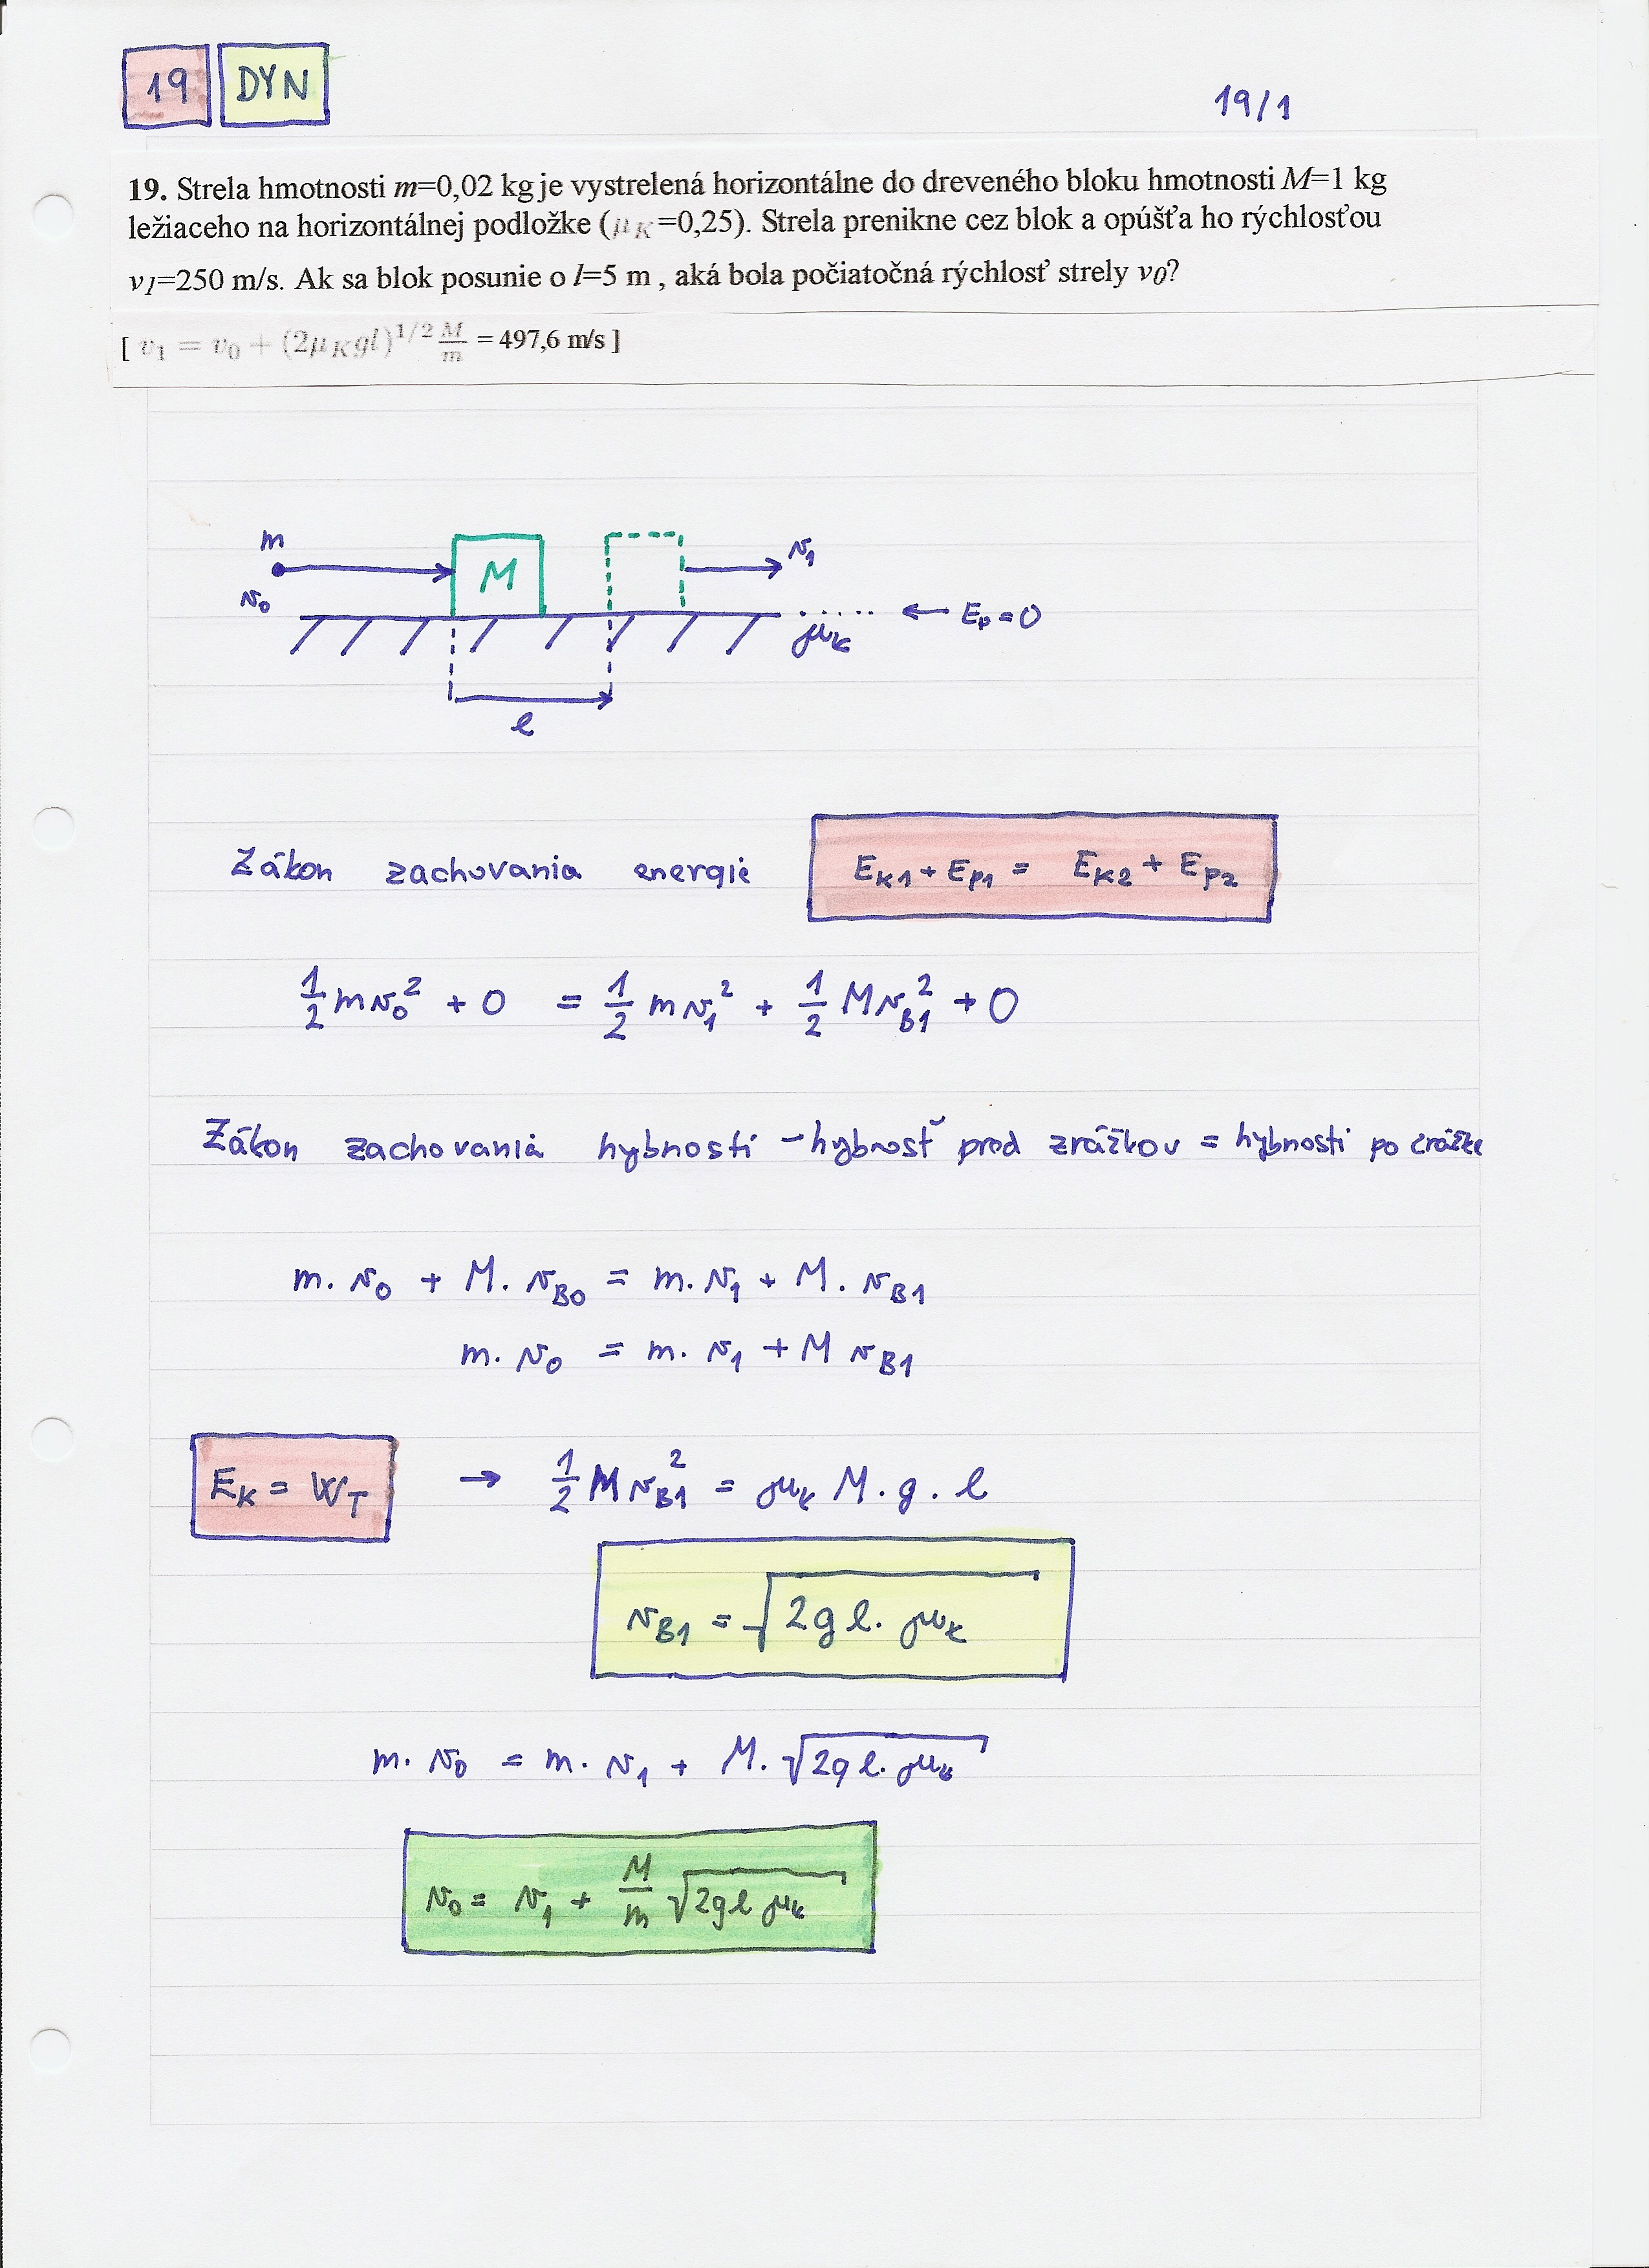 19 DYN
19/1
19. Strela hmotnosti m=0,02 kg je vystrelená horizontálne do dreveného bloku hmotnosti M=1 kg
ležiaceho na horizontálnej podložke (μK=0,25). Strela prenikne cez blok a opúšťa ho rýchlosťou
v1=250 m/s. Ak sa blok posunie o l=5 m , aká bola počiatočná rýchlosť strely v0?
[ v1 = v0 + (2μKgl)^1/2 M/m = 497,6 m/s ]
m
v0
M
v1
μk
← Ep=0
l
Zákon zachovania energie
EK1 + EP1 = EK2 + EP2
1/2 mv0² + 0 = 1/2 mv1² + 1/2 MvB1² + 0
Zákon zachovania hybnosti – hybnosť pred zrážkov = hybnosti po zrážke
m. v0 + M. vB0 = m. v1 + M. vB1
m. v0 = m. v1 + M vB1
EK = WT → 1/2 MvB1² = μk M. g. l
vB1 = √2gl. μk
m. v0 = m. v1 + M. √2gl. μk
v0 = v1 + M/m √2gl μk